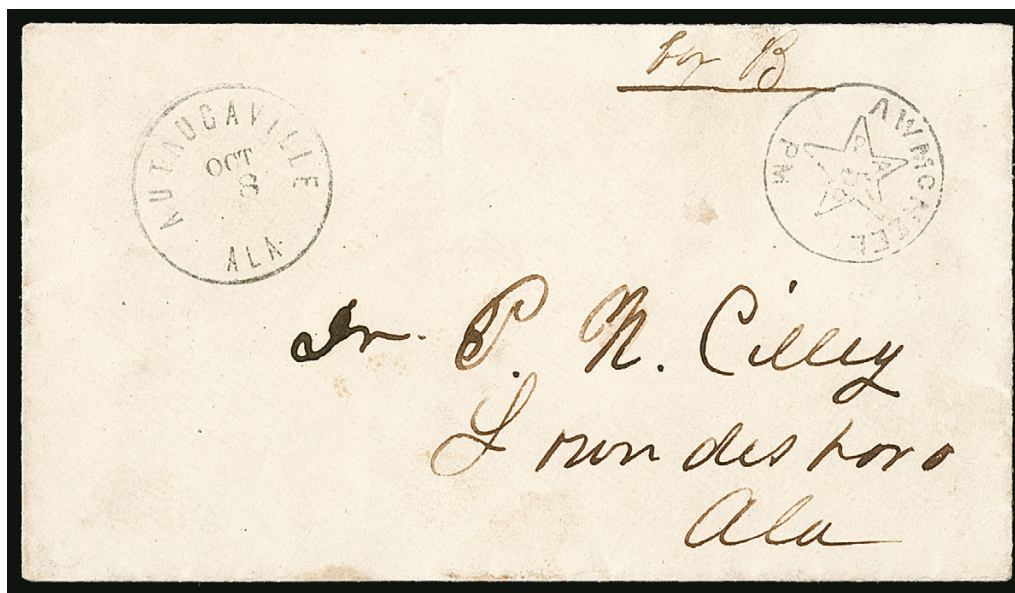 B
AUTAUGAVILLE
OCT
8
ALA.
A W MCNEEL
PM
PAID
5
Dr. P. N. Cilley
Lowndesboro
Ala